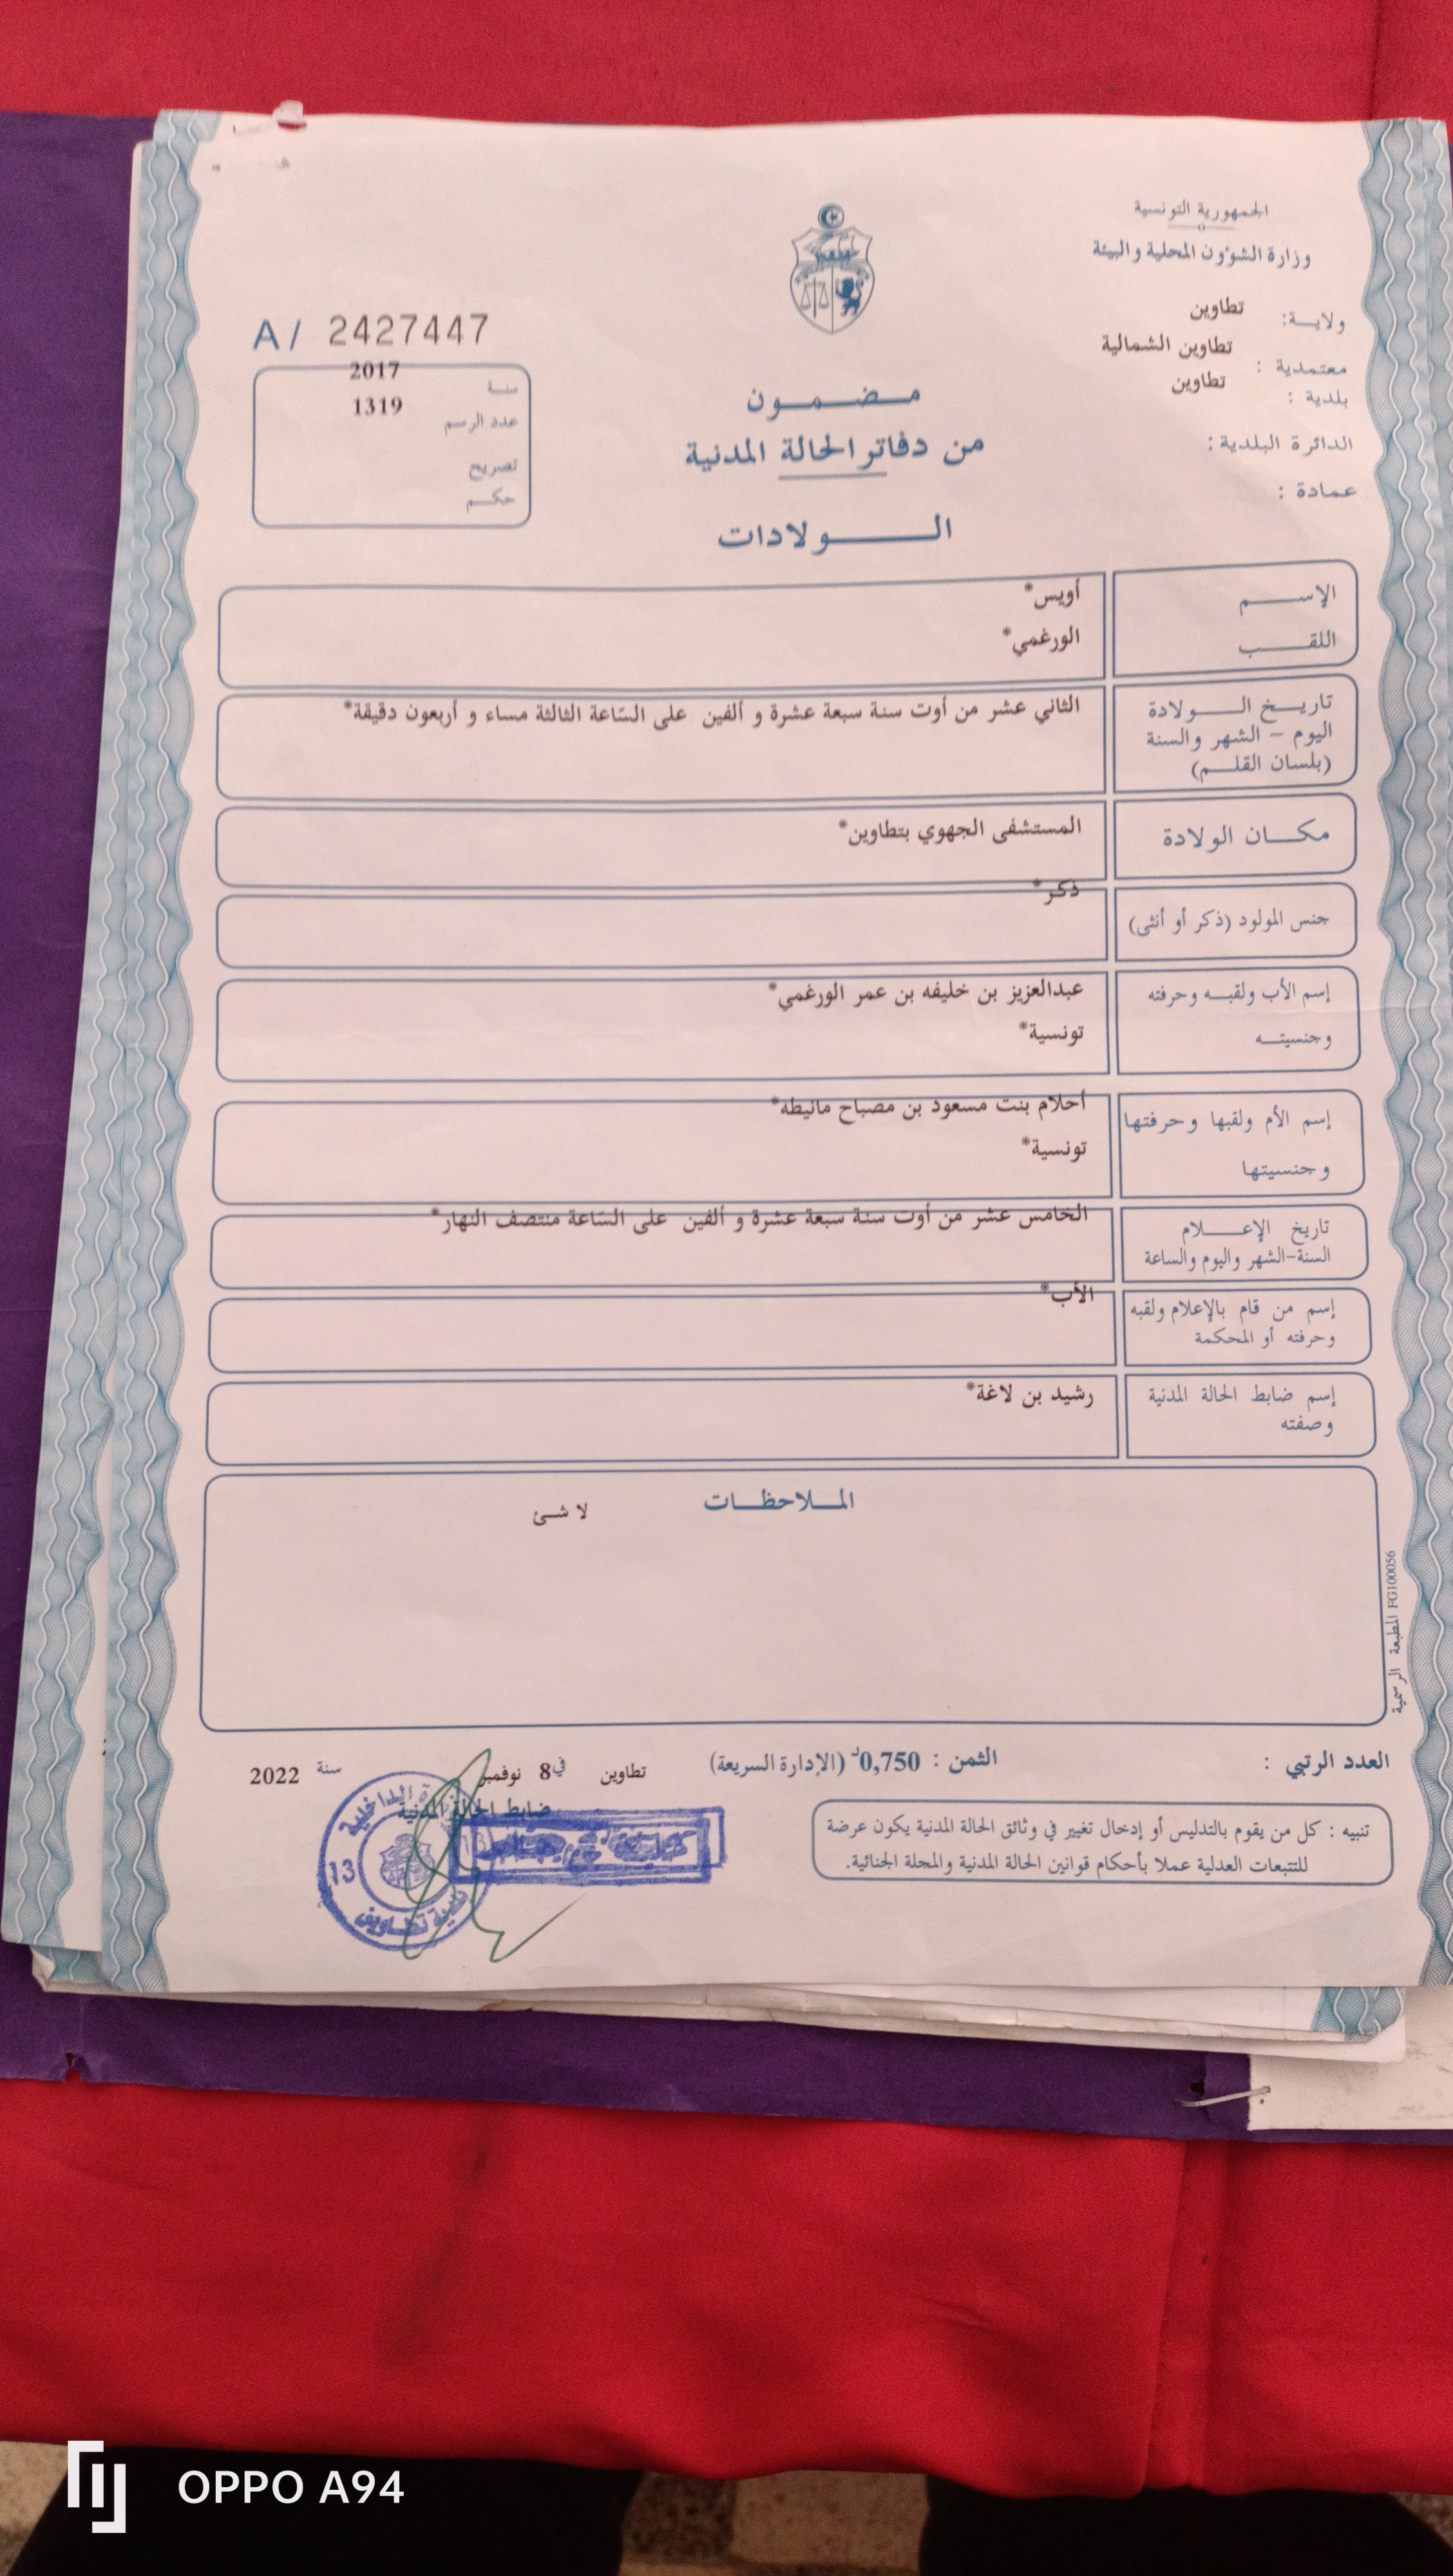 الجمهورية التونسية
وزارة الشؤون المحلية والبيئة
ولايـة: تطاوين
معتمدية : تطاوين الشمالية
بلدية : تطاوين
الدائرة البلدية :
عمادة :
A / 2427447
سنة 2017
عدد الرسم 1319
تصريح
حكم
مضمون
من دفاتر الحالة المدنية
الولادات
الإسم أويس*
اللقب الورغمي*
تاريخ الولادة
اليوم - الشهر والسنة
(بلسان القلم)
الثاني عشر من أوت سنة سبعة عشرة و ألفين على السّاعة الثالثة مساء و أربعون دقيقة*
مكان الولادة المستشفى الجهوي بتطاوين*
جنس المولود (ذكر أو أنثى) ذكر*
إسم الأب ولقبه وحرفته عبدالعزيز بن خليفه بن عمر الورغمي*
وجنسيته تونسية*
إسم الأم ولقبها وحرفتها أحلام بنت مسعود بن مصباح مانيطه*
وجنسيتها تونسية*
تاريخ الإعلام
السنة-الشهر واليوم والساعة
الخامس عشر من أوت سنة سبعة عشرة و ألفين على السّاعة منتصف النهار*
إسم من قام بالإعلام ولقبه
وحرفته أو المحكمة
الأب*
إسم ضابط الحالة المدنية
وصفته
رشيد بن لاغة*
الملاحظات
لا شئ
المطبعة الرسمية FG100056
العدد الرتبي :
الثمن : 0,750د (الإدارة السريعة)
تطاوين في 8 نوفمبر سنة 2022
ضابط الحالة المدنية
تنبيه : كل من يقوم بالتدليس أو إدخال تغيير في وثائق الحالة المدنية يكون عرضة
للتتبعات العدلية عملا بأحكام قوانين الحالة المدنية والمجلة الجنائية.
الداخلية
13
تطاوين
OPPO A94